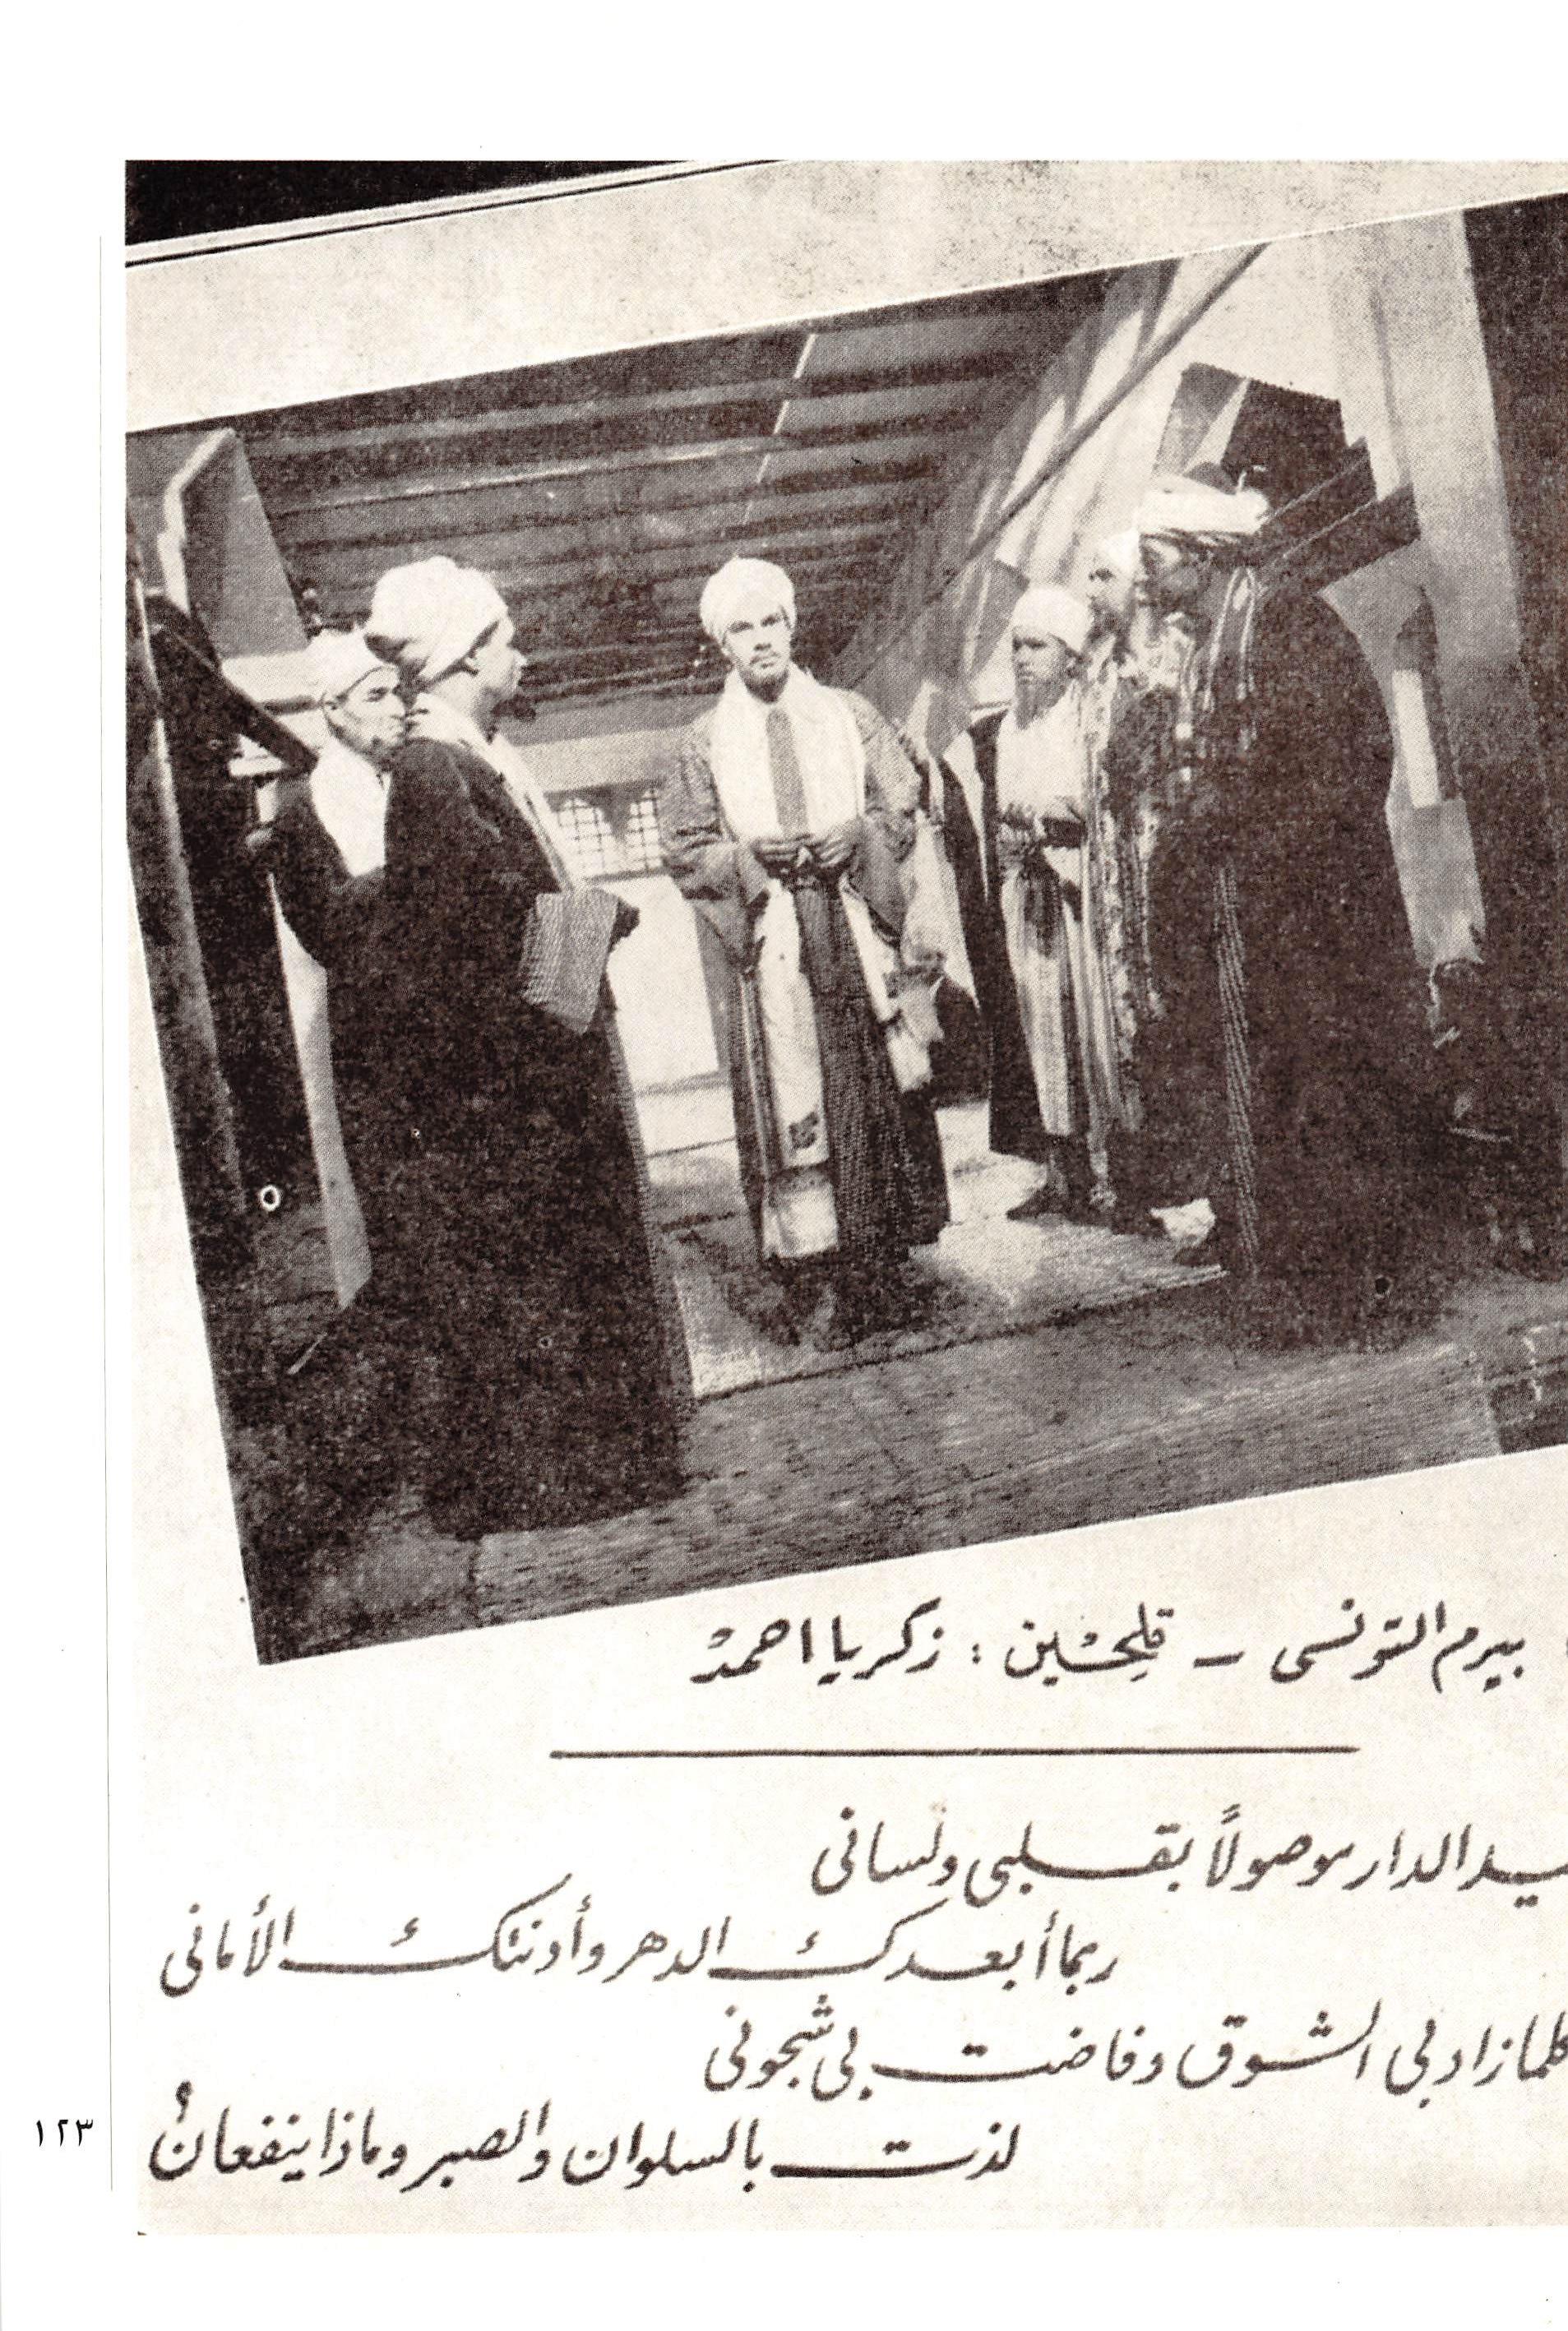 بيرم التونسى – تلحين : زكريا احمد
الدار موصولاً بقلبى ولسانى
ربما أبعدك الدهر وأدنتك الأمانى
كلما زاد بى الشوق وفاضت بى شجونى
لذت بالسلوان والصبر وماذا ينفعان؟
١٢٣